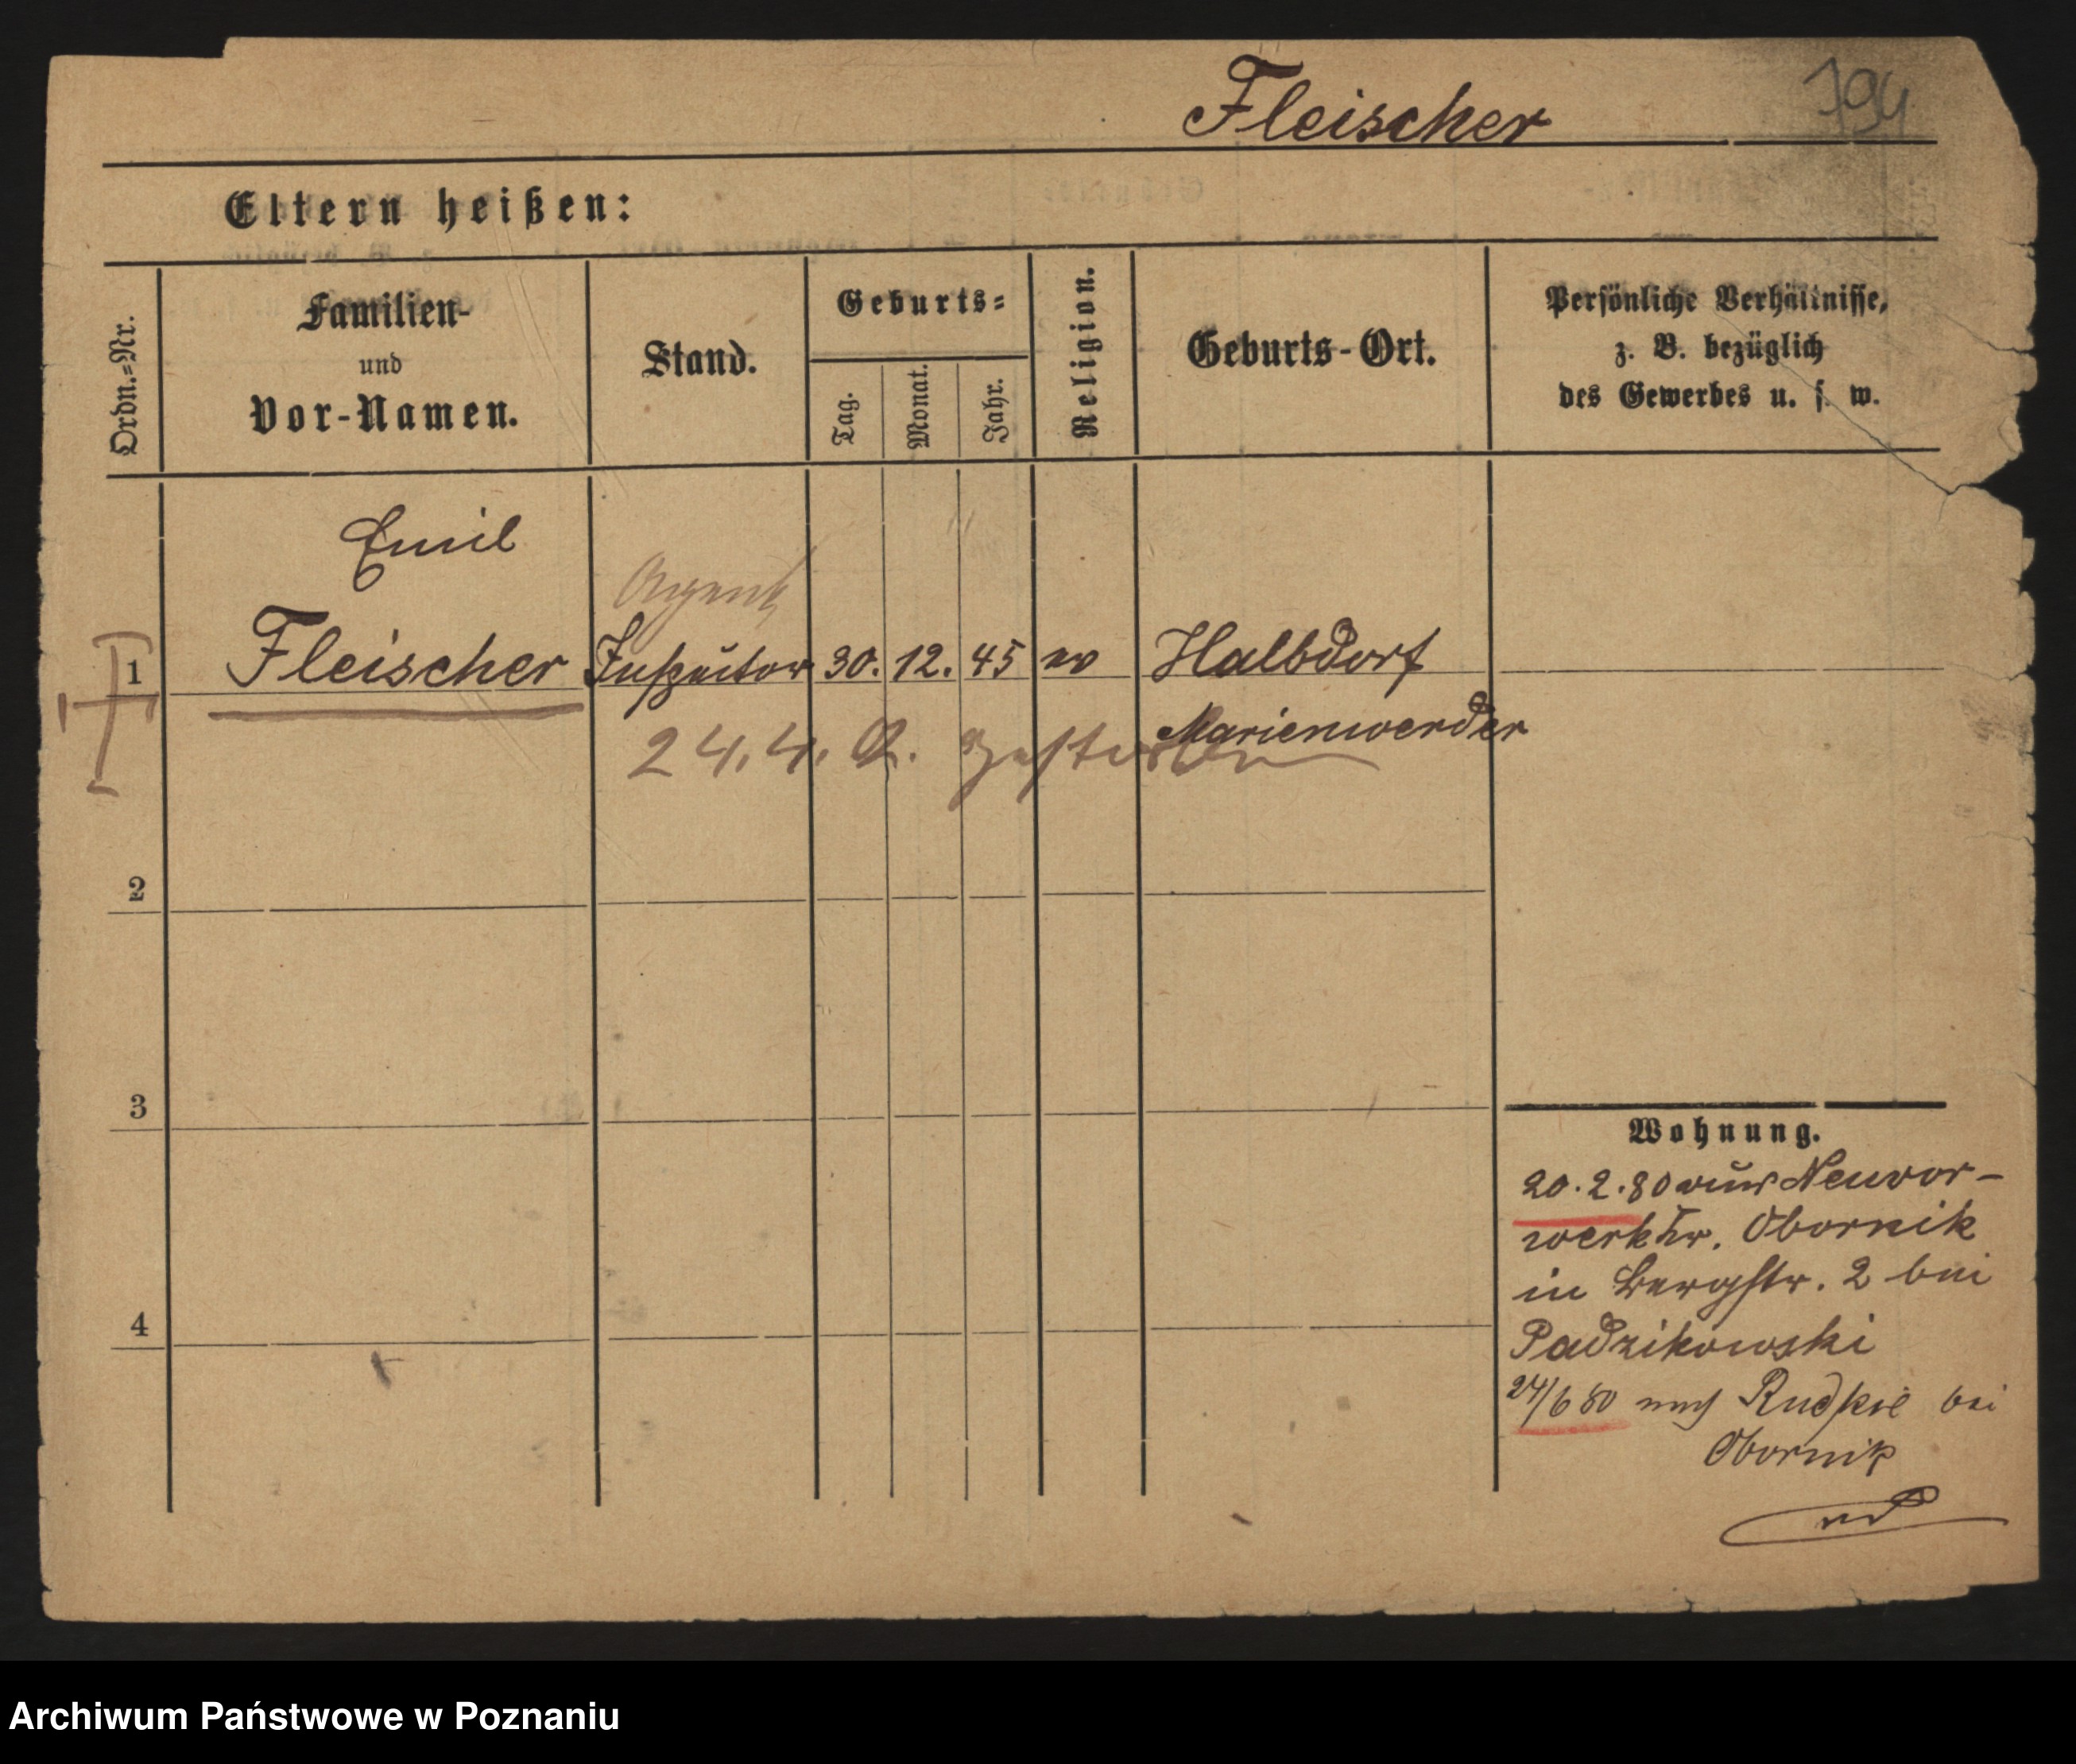 Fleischer 794
Eltern heißen:
Ordn.=Nr.
Familien-
und
Vor-Namen.
Stand.
Geburts=
Tag.
Monat.
Jahr.
Religion.
Geburts-Ort.
Persönliche Verhältnisse,
z. B. bezüglich
des Gewerbes u. s. w.
Emil
Agent
1 Fleischer Inspector 30. 12. 45 ev Halbdorf
Marienwerder
24. 4. gestorben
2
3
4
Wohnung.
20.2.80 aus Neuvor-
werk Kr. Obornik
in Bergstr. 2 bei
Padzikowski
24/6 80 nach Rudkie bei
Obornik
Archiwum Państwowe w Poznaniu